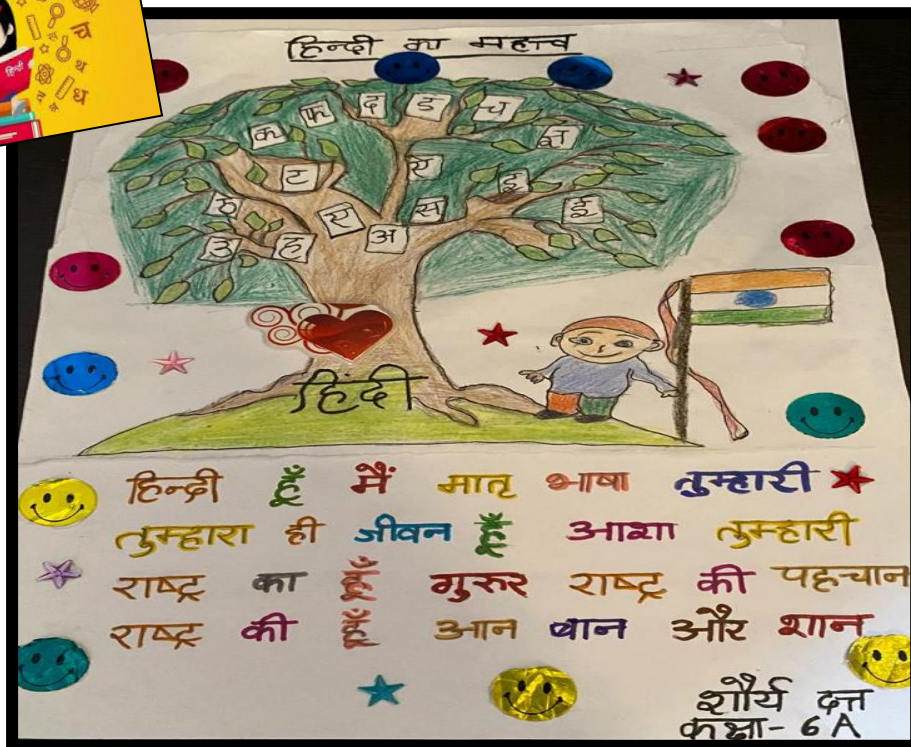 हिन्दी का महत्व
क फ द ड च
ज्ञ
ट ऐ इ
ठ ए स ई
उ ह अ
हिंदी
हिन्दी हूँ मैं मातृ भाषा तुम्हारी
तुम्हारा ही जीवन हूँ आशा तुम्हारी
राष्ट्र का हूँ गुरुर राष्ट्र की पहचान
राष्ट्र की हूँ आन बान और शान
शौर्य दत्त
कक्षा - 6 A
च
थ
ध